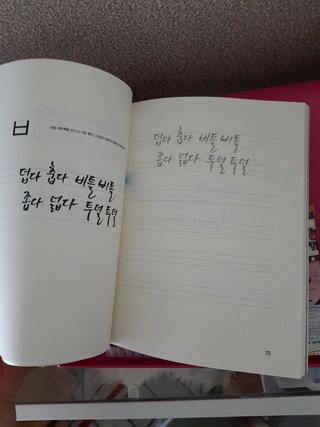 ㅂ
덥다 춥다 비틀비틀
좁다 넓다 투덜투덜
덥다 춥다 비틀비틀
좁다 넓다 투덜투덜
73